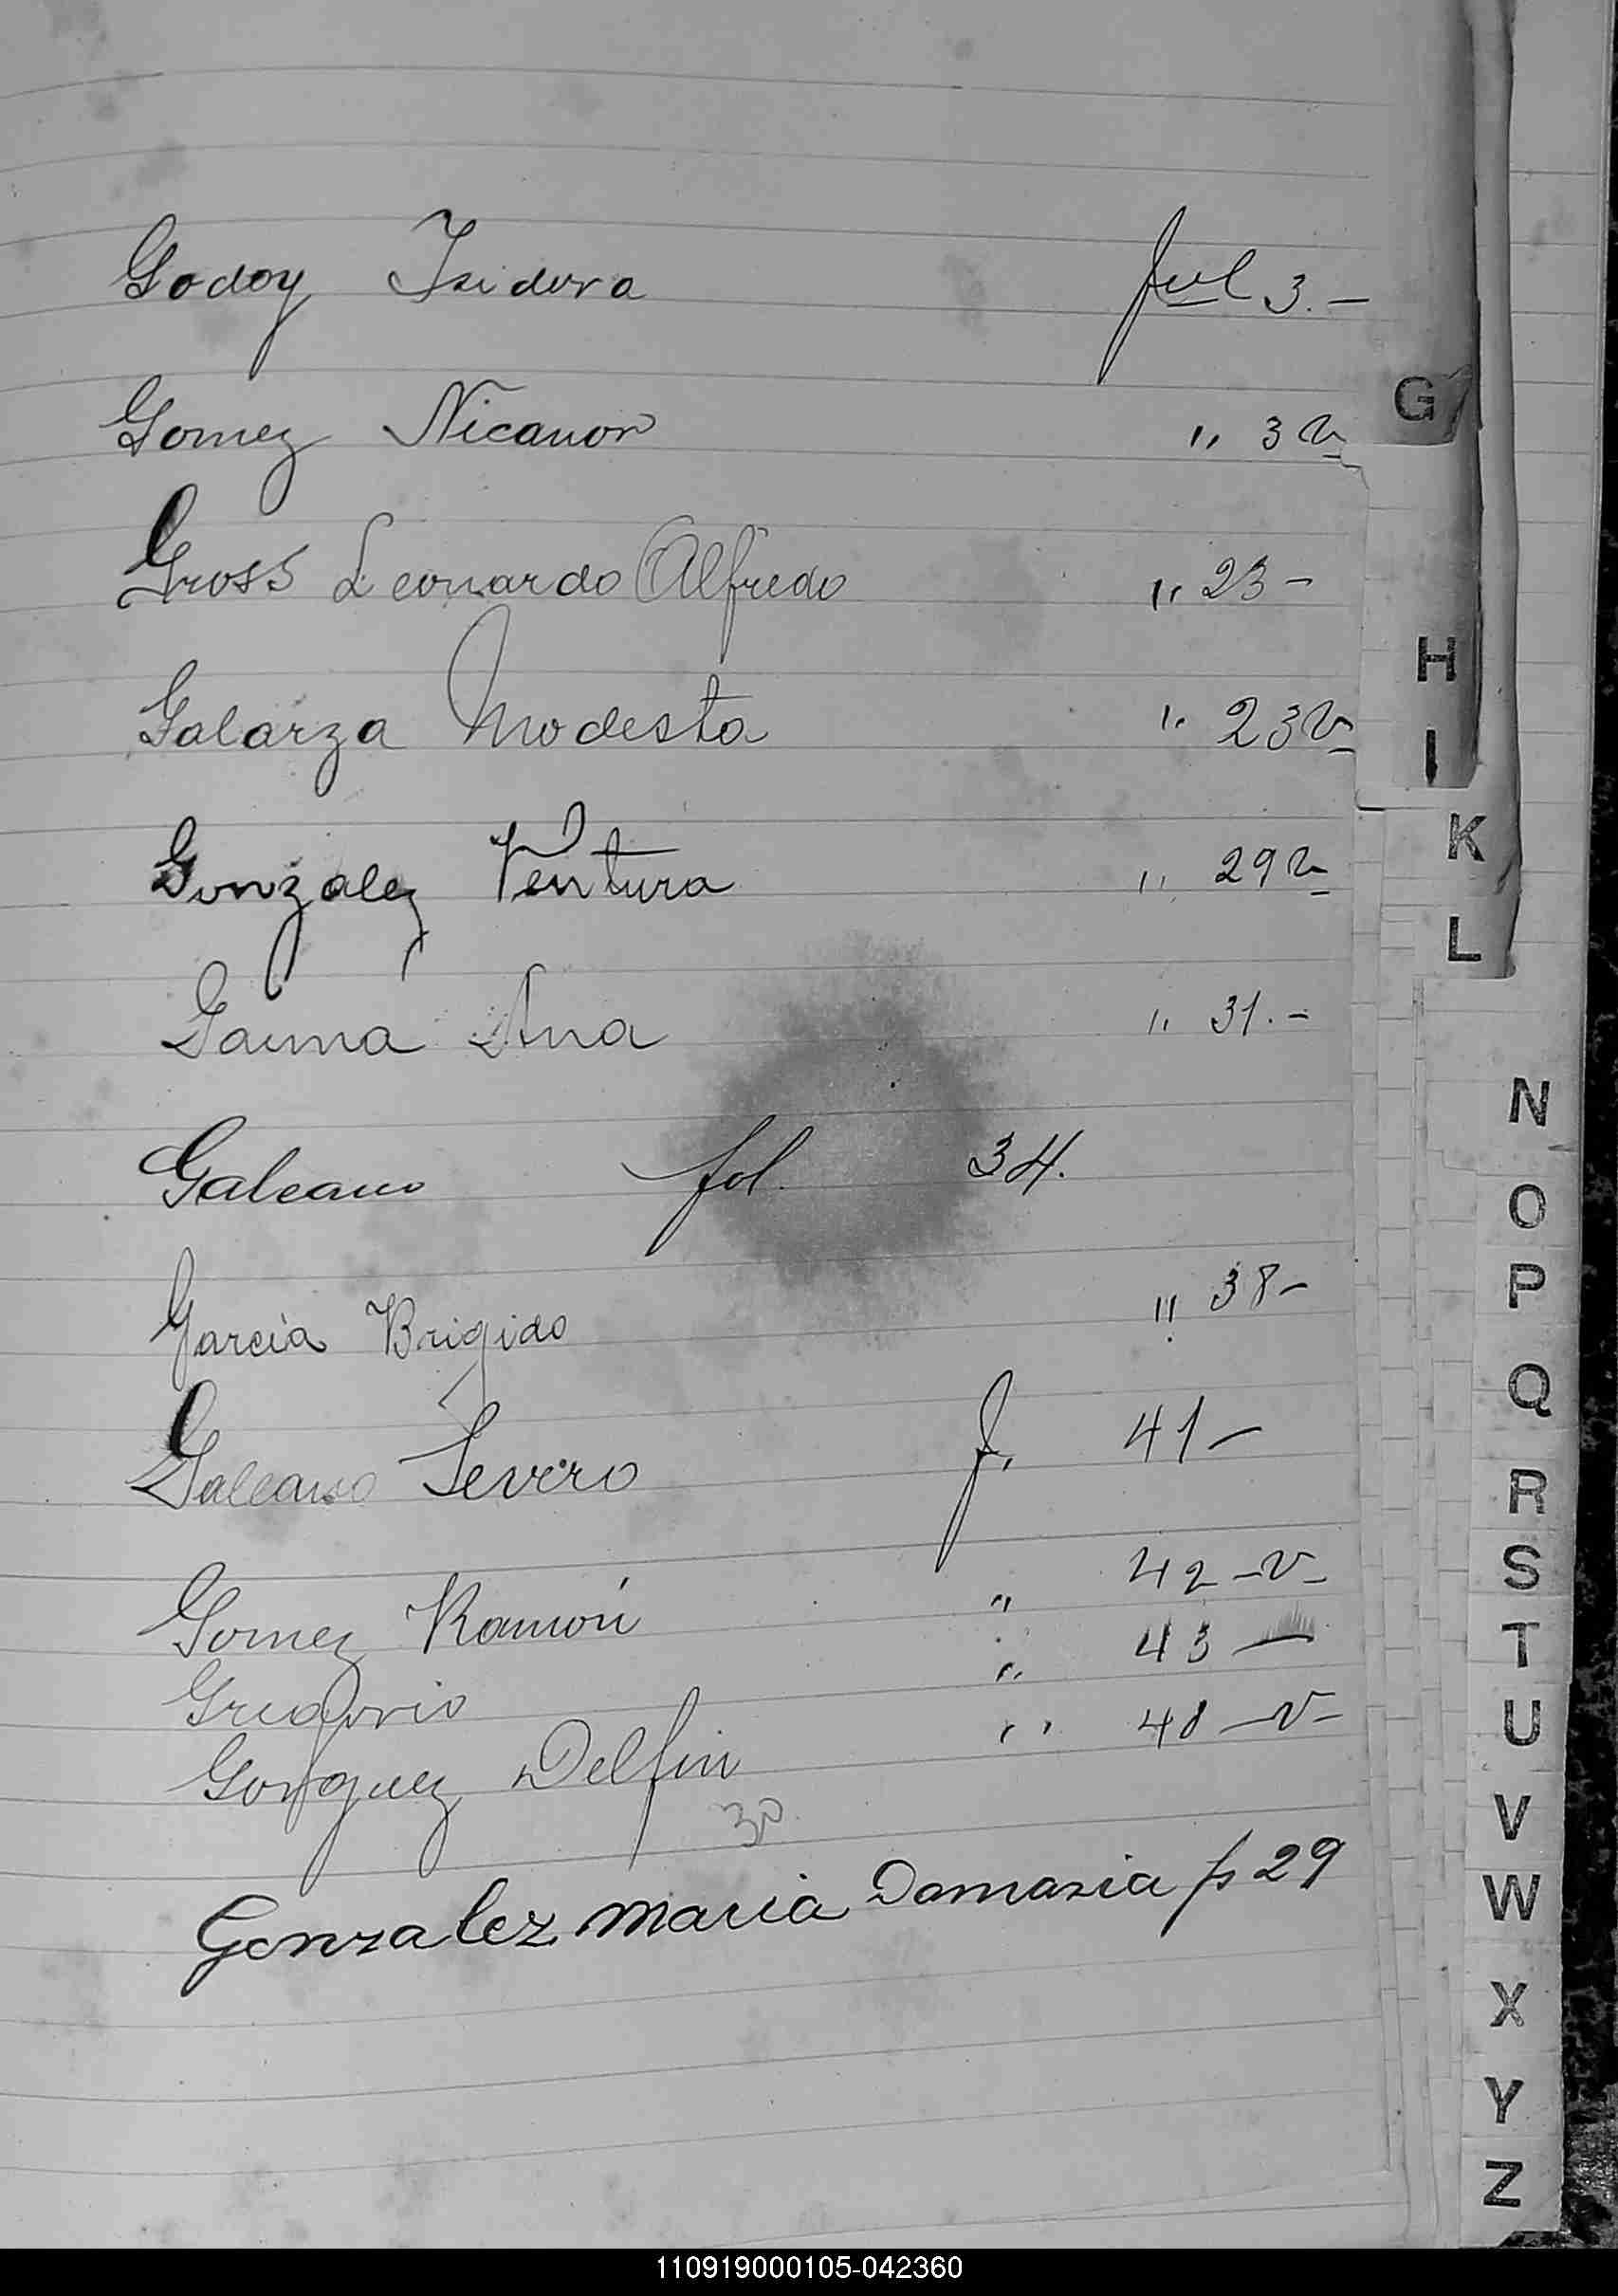 Godoy Isidora ful 3.-
Gomez Nicanor " 3 v
Gross Leonardo Alfredo " 23 -
Galarza Modesta " 23 v
Gonzalez Ventura " 29 v
Gauna Ana " 31.-
Galeano fol. 34.
Garcia Brigido " 38 -
Galeano Severo f. 41 -
Gomez Ramón " 42 - v -
Gregorio " 43 -
Delfin " 48 - v -
30
Gonzalez maria Damasia f 29
G
H
I
K
L
N
O
P
Q
R
S
T
U
V
W
X
Y
Z
110919000105-042360